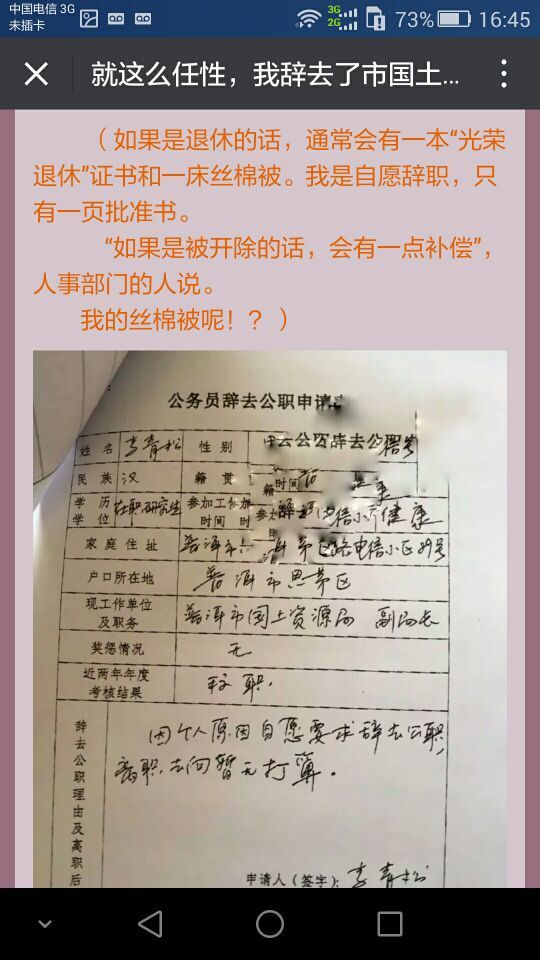 中国电信 3G
未插卡
3G
2G
73%
16:45
就这么任性，我辞去了市国土...
（如果是退休的话，通常会有一本“光荣
退休”证书和一床丝棉被。我是自愿辞职，只
有一页批准书。
“如果是被开除的话，会有一点补偿”，
人事部门的人说。
我的丝棉被呢！？）
公务员辞去公职申请
姓名 李青松 性别
民族 汉 籍贯
学历
学位 在职研究生 参加工作
时间 健康
家庭住址 普洱市 电信小区
户口所在地 普洱市思茅区
现工作单位
及职务 普洱市国土资源局 副局长
奖惩情况 无
近两年年度
考核结果 称职.
辞去公职理由及离职后
因个人原因自愿要求辞去公职,
离职去向暂无打算.
申请人（签字）：李青松